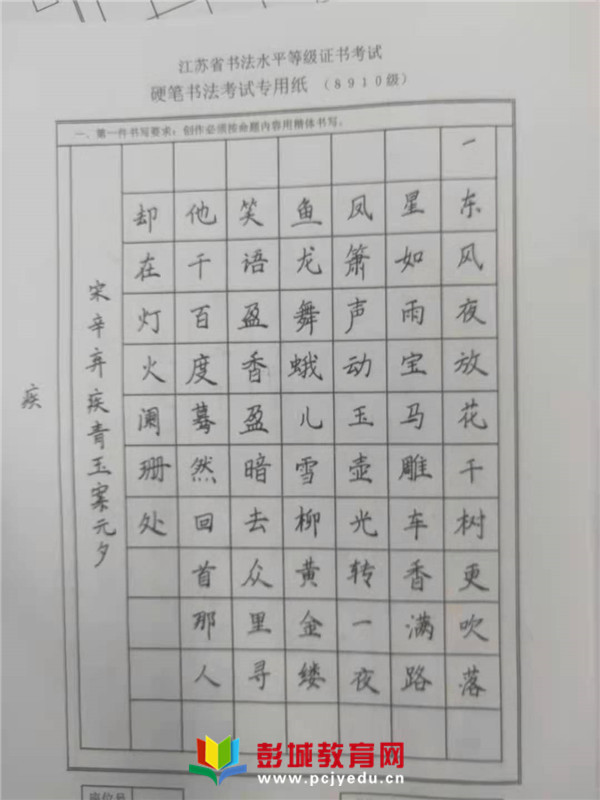 江苏省书法水平等级证书考试
硬笔书法考试专用纸（8910级）
一、第一件书写要求：创作必须按命题内容用楷体书写。
一东风夜放花千树更吹落
星如雨宝马雕车香满路
凤箫声动玉壶光转一夜
鱼龙舞蛾儿雪柳黄金缕
笑语盈香盈暗去众里寻
他千百度蓦然回首那人
却在灯火阑珊处
宋辛弃疾青玉案元夕
疾
彭城教育网
www.pcjyedu.cn